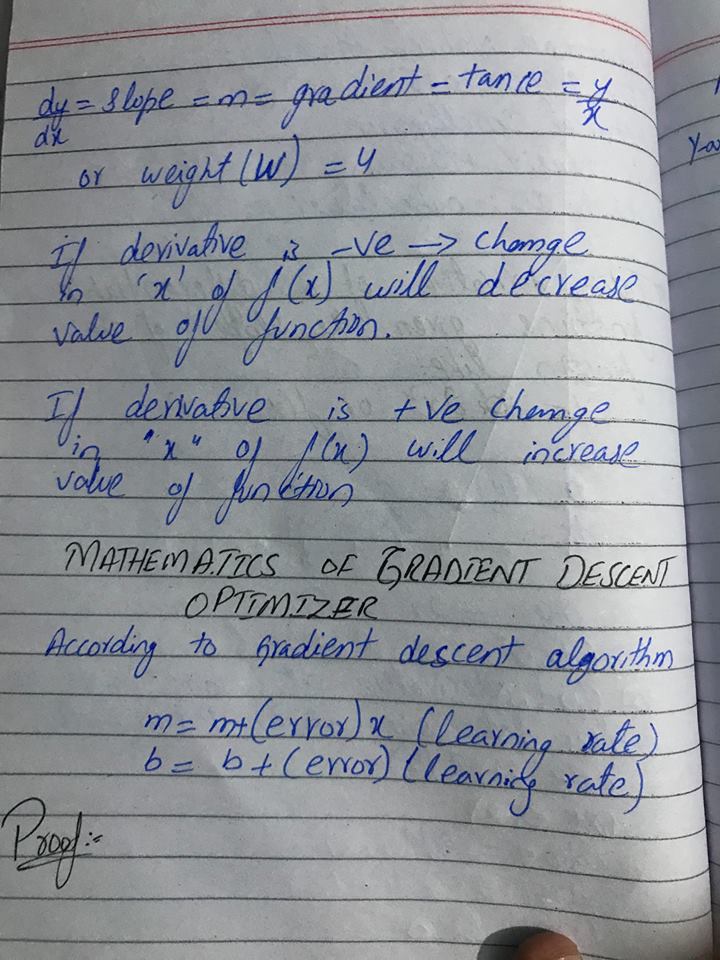 dy/dx = slope = m = gradient = tan = y/x
or weight (W) = 4
If derivative is -ve → change
in 'x' of f(x) will decrease
value of function.
If derivative is +ve change
in "x" of f(x) will increase
value of function
MATHEMATICS OF GRADIENT DESCENT
OPTIMIZER
According to gradient descent algorithm
m = m+(error) x (learning rate)
b = b + (error) (learning rate)
Proof:-